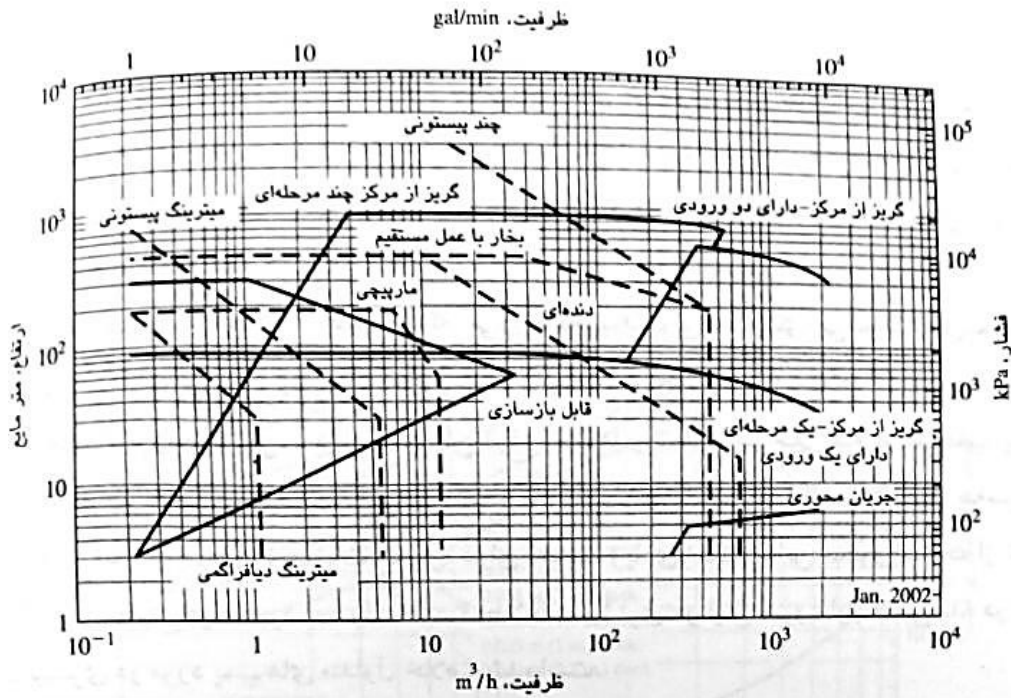 ظرفیت، gal/min
1 10 10² 10³ 10⁴
10⁴
10³
10²
10
1
ارتفاع، متر مایع
10⁵
10⁴
10³
10²
فشار، kPa
چند پیستونی
گریز از مرکز چند مرحله‌ای
گریز از مرکز-دارای دو ورودی
میترینگ پیستونی
بخار با عمل مستقیم
مارپیچی
دنده‌ای
قابل بازسازی
گریز از مرکز-یک مرحله‌ای
دارای یک ورودی
جریان محوری
میترینگ دیافراگمی
Jan. 2002
10⁻¹ 1 10 10² 10³ 10⁴
ظرفیت، m³/h